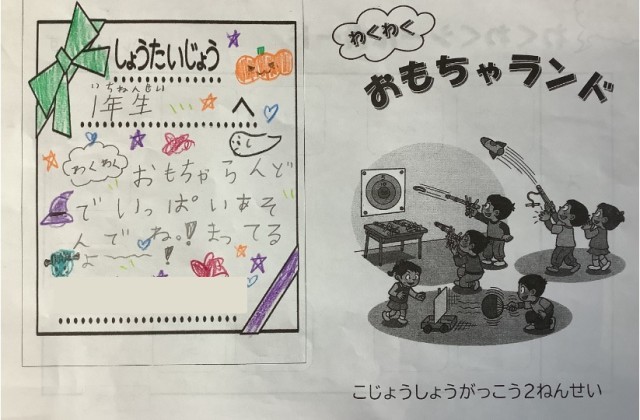 しょうたいじょう
いちねんせい
1年生 へ
わくわく
おもちゃらんど
でいっぱいあそ
んでね。!まってる
よ〜〜〜!
わくわく
おもちゃランド
こじょうしょうがっこう2ねんせい